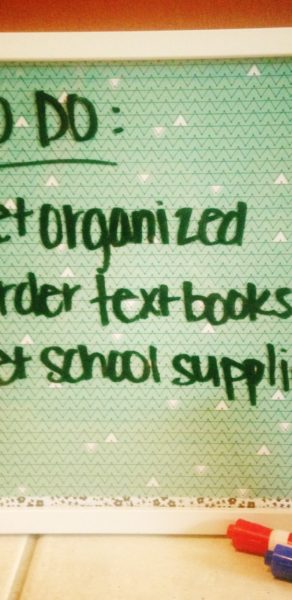 O DO:
et organized
rder textbooks
et school suppli